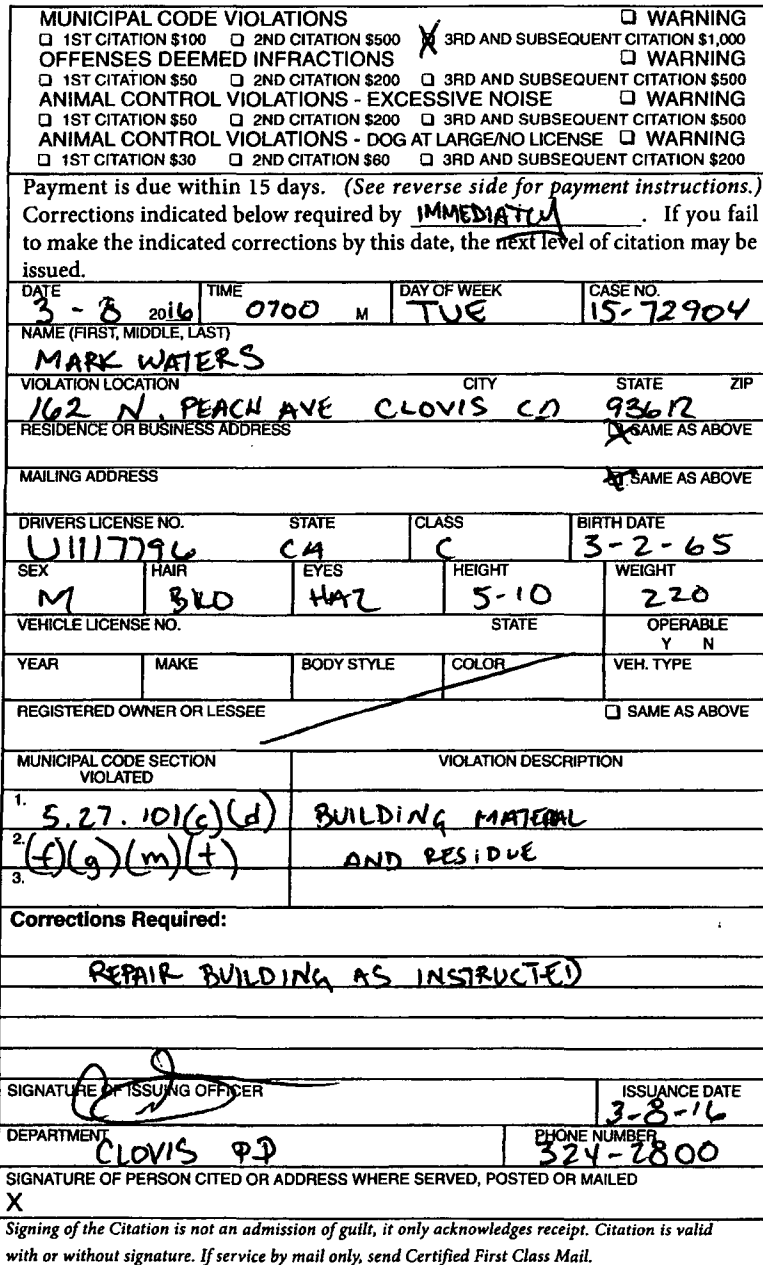 MUNICIPAL CODE VIOLATIONS ❑ WARNING
❑ 1ST CITATION $100 ❑ 2ND CITATION $500 ☒ 3RD AND SUBSEQUENT CITATION $1,000
OFFENSES DEEMED INFRACTIONS ❑ WARNING
❑ 1ST CITATION $50 ❑ 2ND CITATION $200 ❑ 3RD AND SUBSEQUENT CITATION $500
ANIMAL CONTROL VIOLATIONS - EXCESSIVE NOISE ❑ WARNING
❑ 1ST CITATION $50 ❑ 2ND CITATION $200 ❑ 3RD AND SUBSEQUENT CITATION $500
ANIMAL CONTROL VIOLATIONS - DOG AT LARGE/NO LICENSE ❑ WARNING
❑ 1ST CITATION $30 ❑ 2ND CITATION $60 ❑ 3RD AND SUBSEQUENT CITATION $200
Payment is due within 15 days. (See reverse side for payment instructions.)
Corrections indicated below required by IMMEDIATLY. If you fail
to make the indicated corrections by this date, the next level of citation may be
issued.
DATE TIME DAY OF WEEK CASE NO.
3 - 8 2016 0700 M TUE 15-72904
NAME (FIRST, MIDDLE, LAST)
MARK WATERS
VIOLATION LOCATION CITY STATE ZIP
162 N. PEACH AVE CLOVIS CA 93612
RESIDENCE OR BUSINESS ADDRESS ☒ SAME AS ABOVE
MAILING ADDRESS ☒ SAME AS ABOVE
DRIVERS LICENSE NO. STATE CLASS BIRTH DATE
U1117796 CA C 3-2-65
SEX HAIR EYES HEIGHT WEIGHT
M HAZ 5-10 220
VEHICLE LICENSE NO. STATE OPERABLE
Y N
YEAR MAKE BODY STYLE COLOR VEH. TYPE
REGISTERED OWNER OR LESSEE ❑ SAME AS ABOVE
MUNICIPAL CODE SECTION VIOLATION DESCRIPTION
VIOLATED
1. 5.27.101(c)(d) BUILDING MATERIAL
2. (f)(g)(m)(t) AND RESIDUE
3.
Corrections Required:
REPAIR BUILDING AS INSTRUCTED
SIGNATURE OF ISSUING OFFICER ISSUANCE DATE
3-8-16
DEPARTMENT PHONE NUMBER
CLOVIS PD 324-2800
SIGNATURE OF PERSON CITED OR ADDRESS WHERE SERVED, POSTED OR MAILED
X
Signing of the Citation is not an admission of guilt, it only acknowledges receipt. Citation is valid
with or without signature. If service by mail only, send Certified First Class Mail.